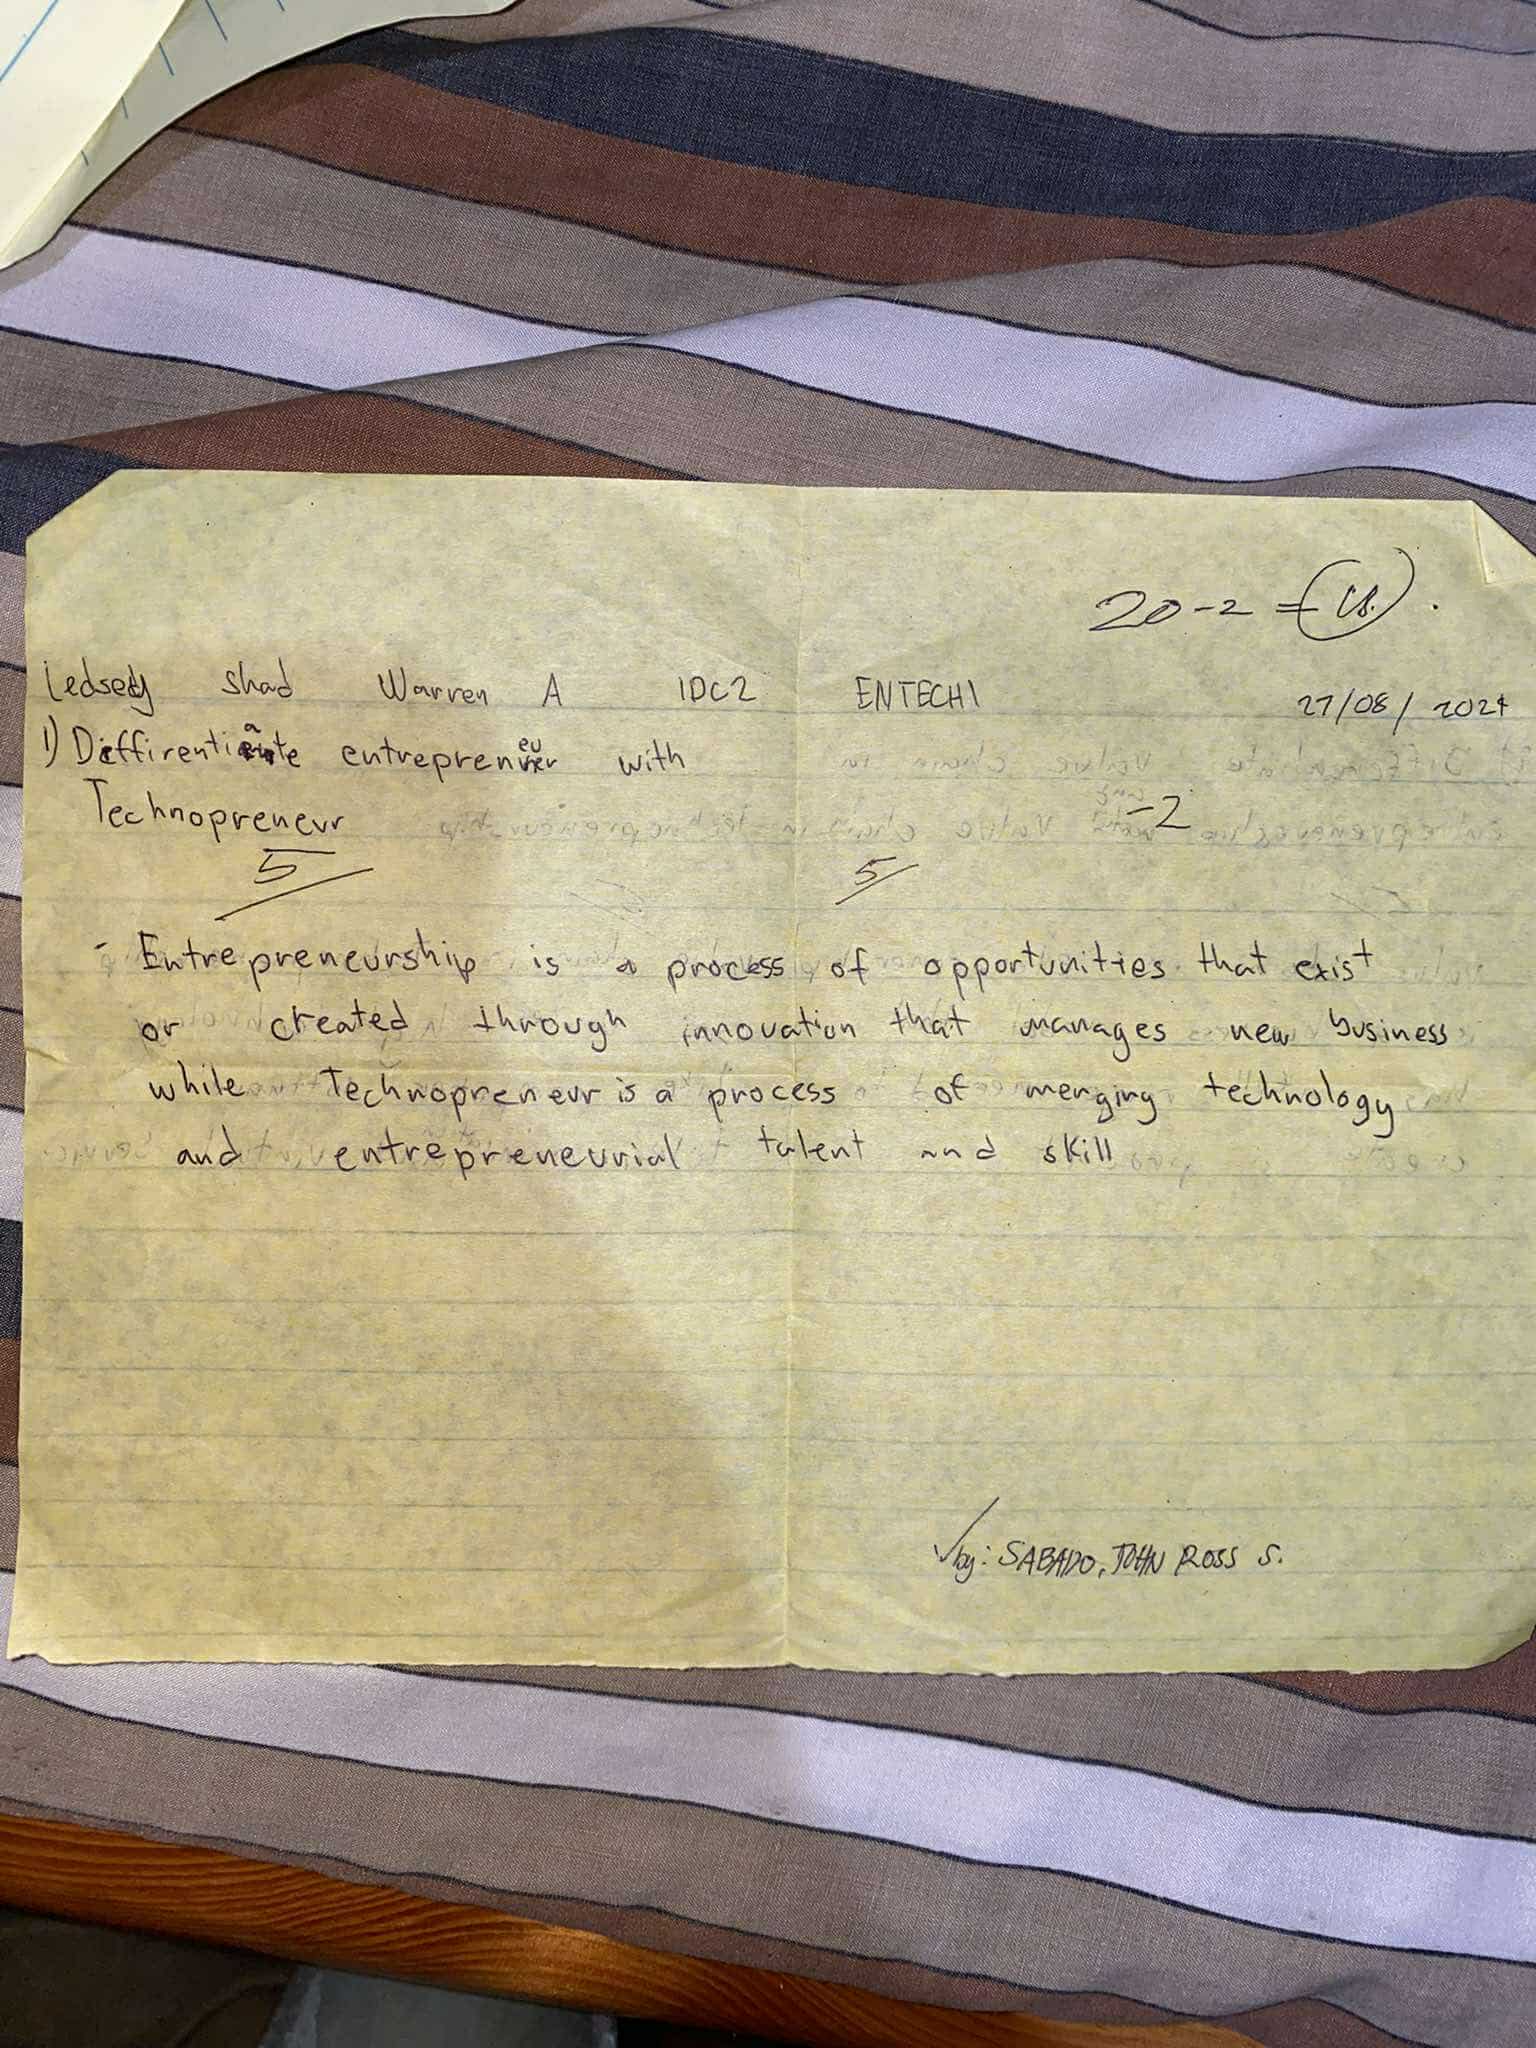 20 - 2 = 18.
Ledsedy Shad Warren A IDC2 ENTECH1 27/08/2024
1) Diffirentiate entrepreneur with
Technopreneur
-2
5 5
- Entrepreneurship is a process of opportunities that exist
or created through innovation that manages new business
while Technopreneur is a process of merging technology
and entrepreneurial talent and skill
by: SABADO, JOHN ROSS S.